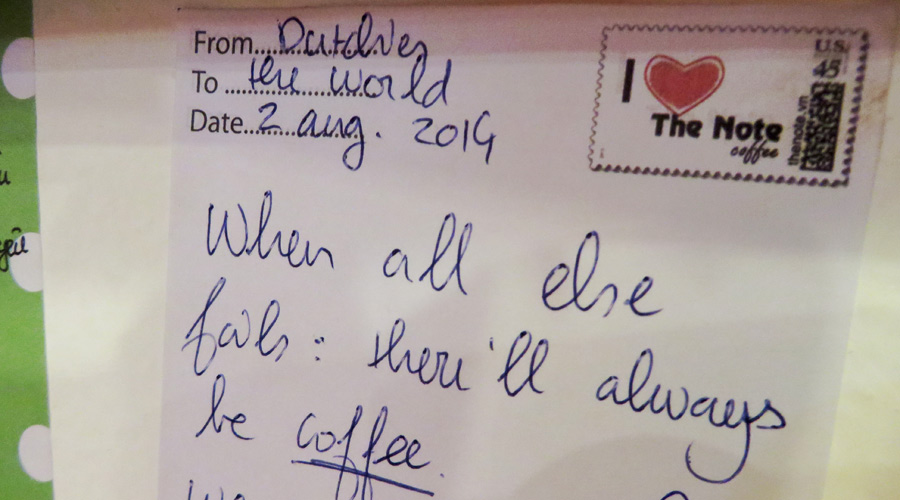 From....Dutchies
To....the world
Date..2 aug. 2014
U.S.
45
I
The Note
coffee
thenote.vn
When all else
fails: there'll always
be coffee.